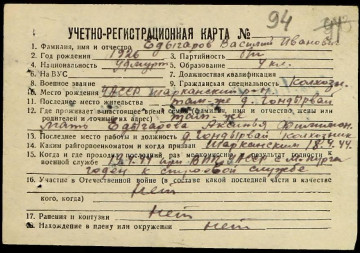 94
УЧЕТНО-РЕГИСТРАЦИОННАЯ КАРТА №
1. Фамилия, имя и отчество Едыгаров Василий Иванович
2. Год рождения 1926 3. Партийность б/п
4. Национальность удмурт 5. Образование 4 кл.
6. На ВУС 7. Должностная квалификация
8. Военное звание 9. Гражданская специальность Колхозн.
10. Место рождения УАССР Шарканский р-н
11. Последнее место жительства там-же д. Гондырвай
12. Где проживает в настоящее время семья (фамилия, имя и отчество, жены или
родителей и точный их адрес) там-же
Мать Едыгарова
13. Последнее место работы и должность д. Гондырвай Колхозник
14. Каким райгорвоенкоматом и когда призван Шарканским 18.4.44.
15. Когда и где проходил последний раз медкомиссию и результат годности к
военной службе
годен к строевой службе
16. Участие в Отечественной войне (в составе какой последней части и в качестве
кого, когда) Нет
17. Ранения и контузии Нет
18. Нахождение в плену или окружении Нет